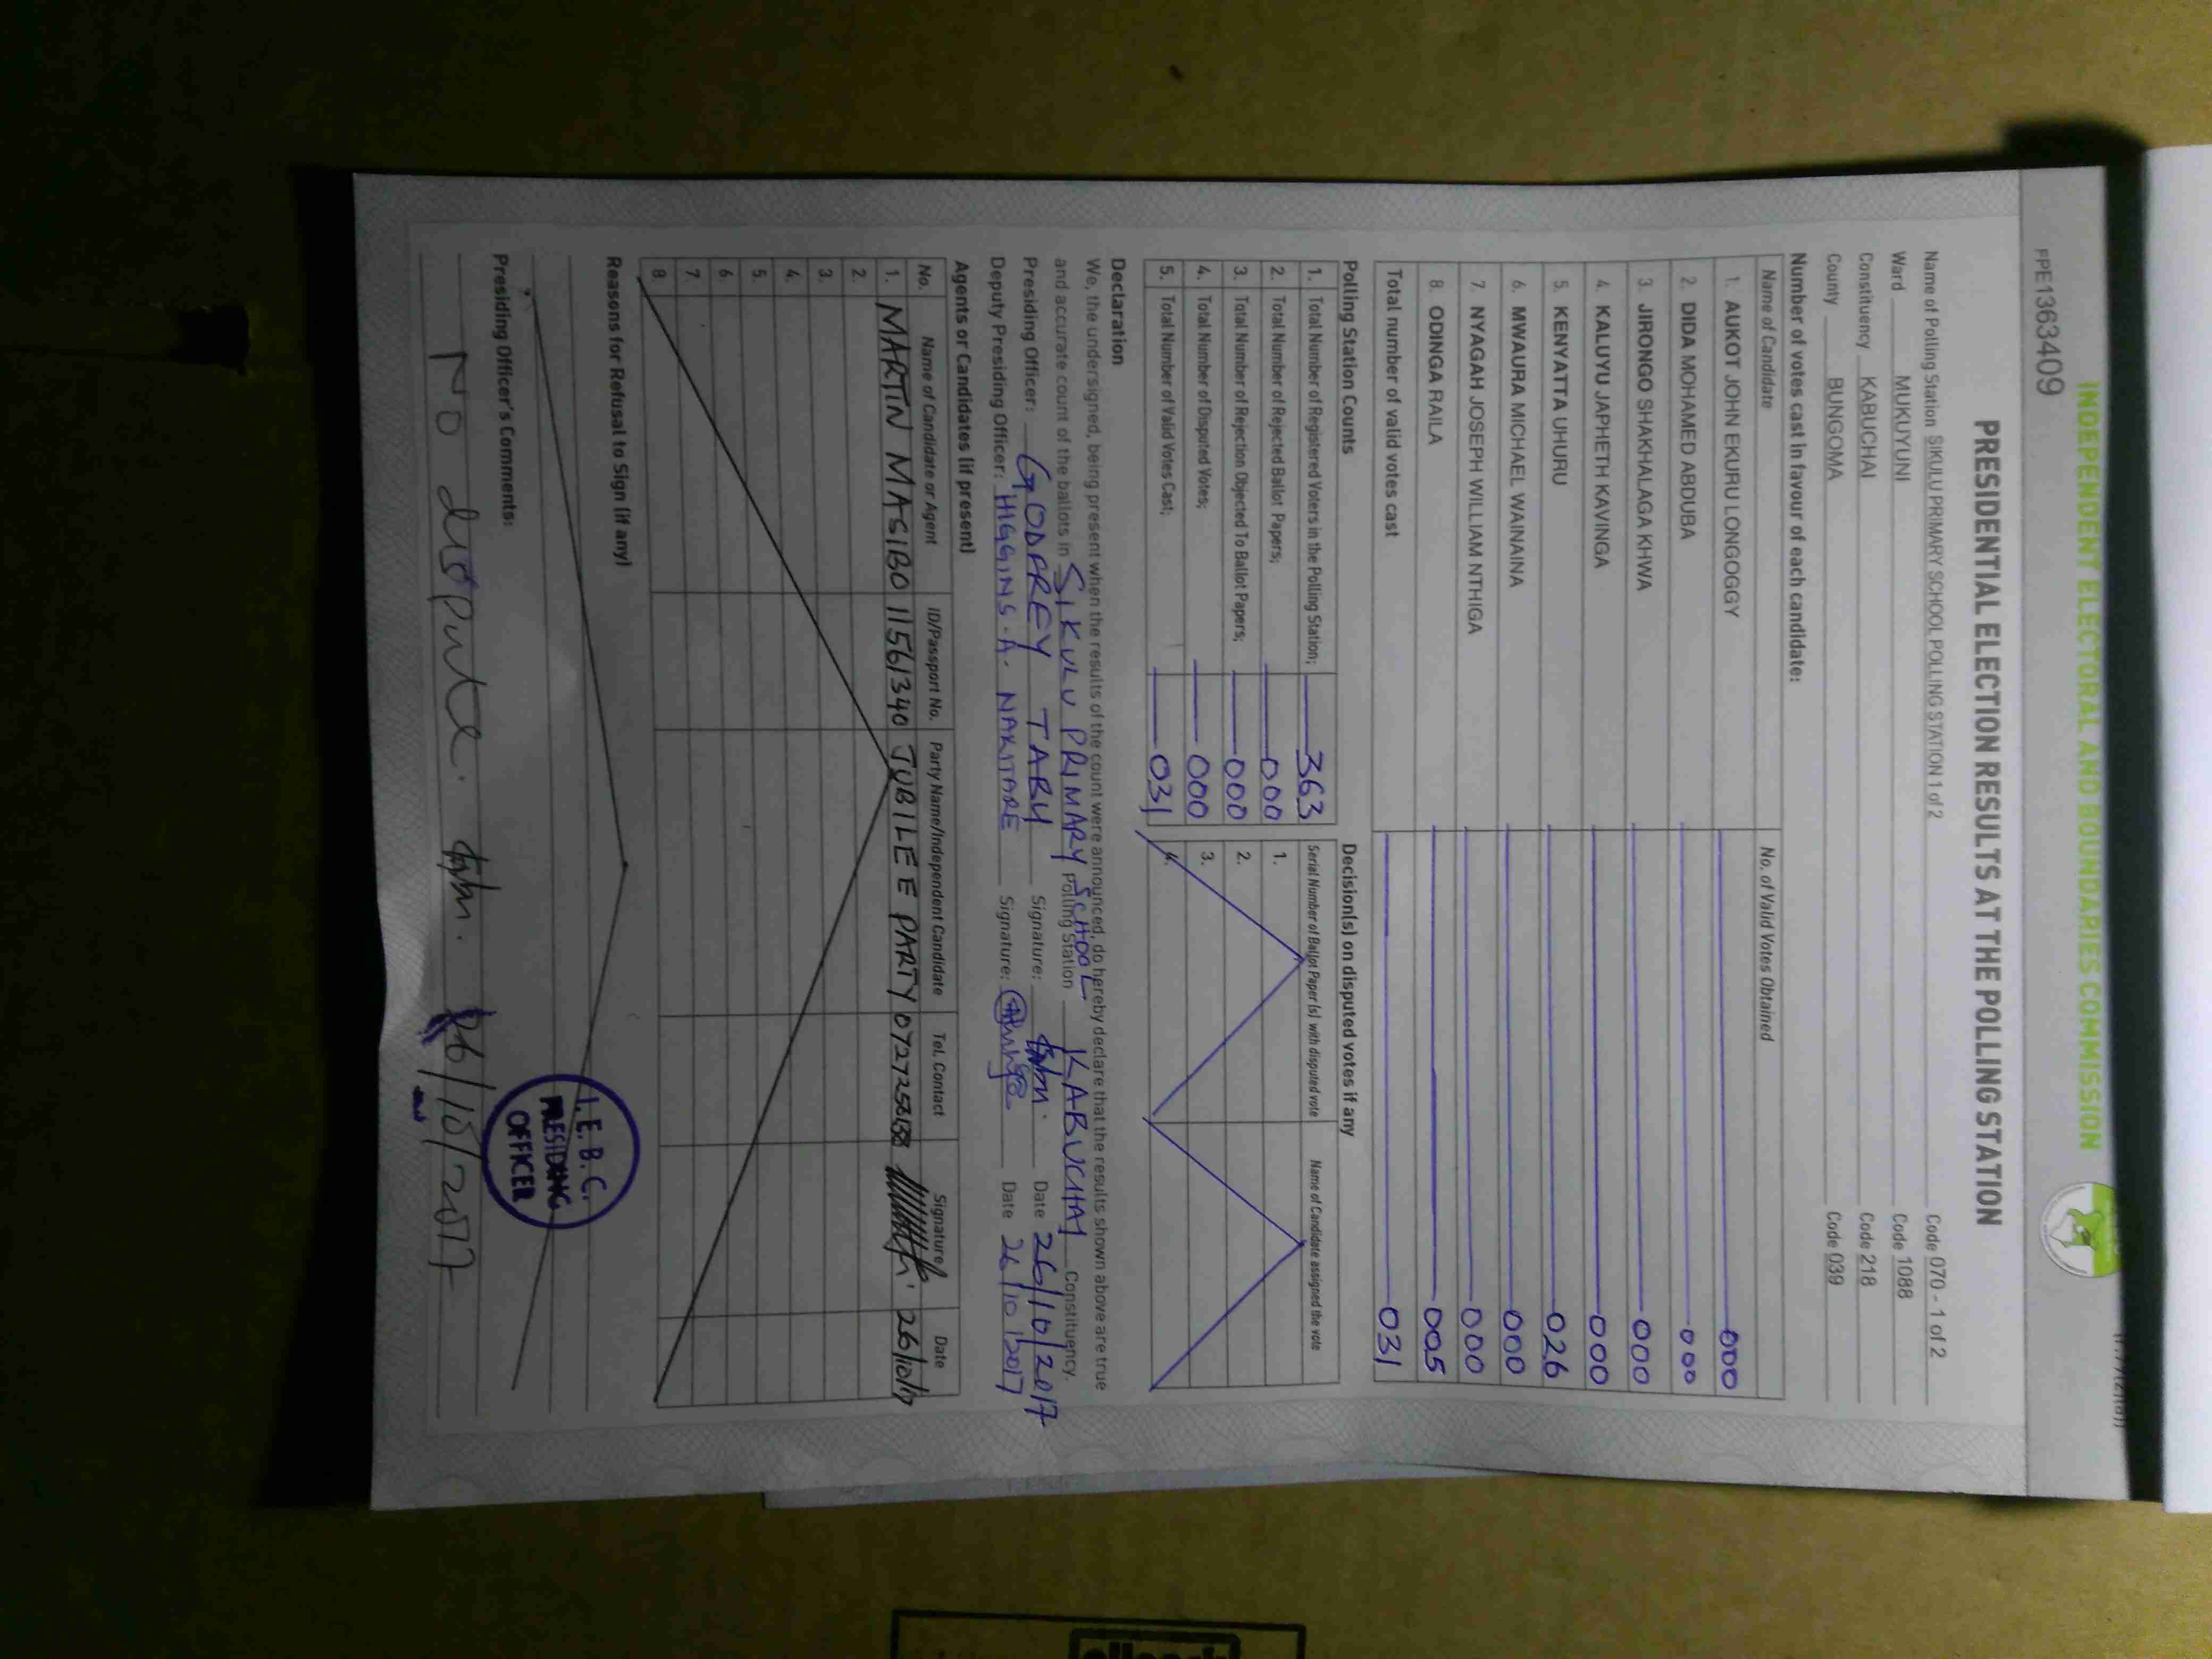 INDEPENDENT ELECTORAL AND BOUNDARIES COMMISSION
FPE1363409
PRESIDENTIAL ELECTION RESULTS AT THE POLLING STATION
Name of Polling Station SIKULU PRIMARY SCHOOL POLLING STATION 1 of 2 Code 070 - 1 of 2
Ward MUKUYUNI Code 1088
Constituency KABUCHAI Code 218
County BUNGOMA Code 039
Number of votes cast in favour of each candidate:
Name of Candidate No. of Valid Votes Obtained
1. AUKOT JOHN EKURU LONGOGGY 000
2. DIDA MOHAMED ABDUBA 000
3. JIRONGO SHAKHALAGA KHWA 000
4. KALUYU JAPHETH KAVINGA 000
5. KENYATTA UHURU 026
6. MWAURA MICHAEL WAINAINA 000
7. NYAGAH JOSEPH WILLIAM NTHIGA 000
8. ODINGA RAILA 005
Total number of valid votes cast 031
Polling Station Counts
1. Total Number of Registered Voters in the Polling Station; 363
2. Total Number of Rejected Ballot Papers; 000
3. Total Number of Rejection Objected To Ballot Papers; 000
4. Total Number of Disputed Votes; 000
5. Total Number of Valid Votes Cast; 031
Decision(s) on disputed votes if any
Serial Number of Ballot Paper(s) with disputed vote Name of Candidate assigned the vote
1.
2.
3.
4.
Declaration
We, the undersigned, being present when the results of the count were announced, do hereby declare that the results shown above are true
and accurate count of the ballots in SIKULU PRIMARY SCHOOL Polling Station KABUCHAI Constituency.
Presiding Officer: GODPREY TABU Signature: Date 26/10/2017
Deputy Presiding Officer: HIGGINS.A. NAKITARE Signature: Date 26/10/2017
Agents or Candidates (if present)
No. Name of Candidate or Agent ID/Passport No. Party Name/Independent Candidate Tel. Contact Signature Date
1. MARTIN MASIBO 11561340 JUBILEE PARTY 26/10/17
2.
3.
4.
5.
6.
7.
8.
Reasons for Refusal to Sign (if any)
Presiding Officer's Comments:
No dispute. 26/10/2017
I.E.B.C.
PRESIDING
OFFICER